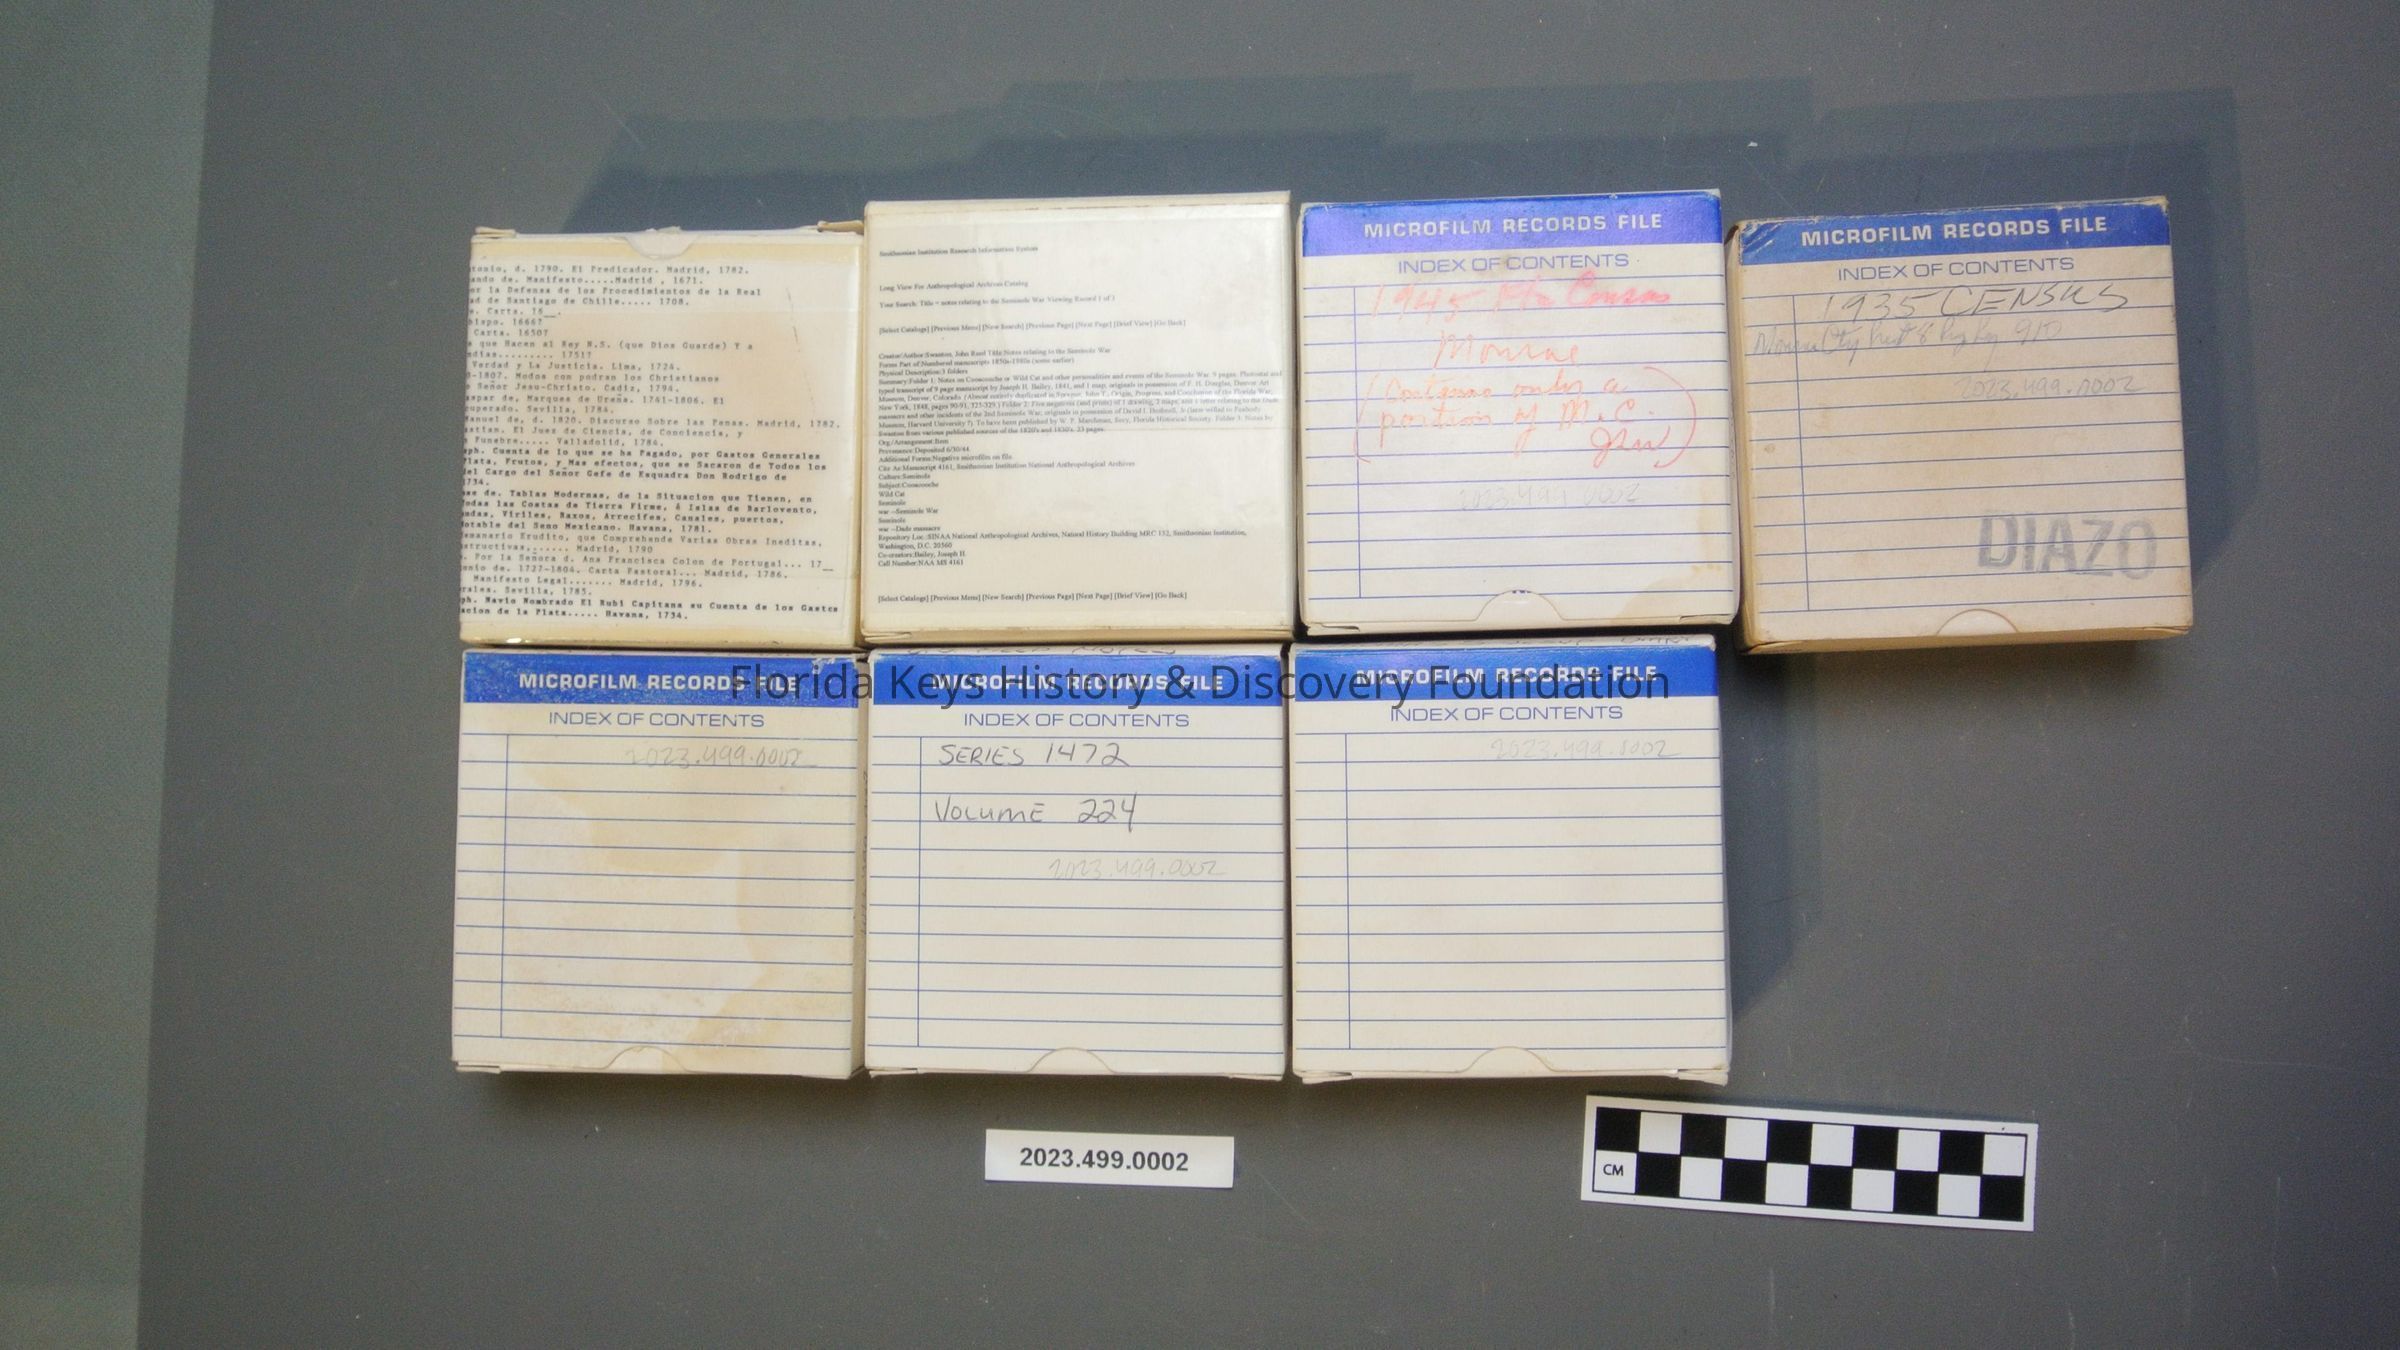 tonio, d. 1790. El Predicador. Madrid, 1782.
ando de. Manifesto.....Madrid , 1671.
or la Defensa de los Procedimientos de la Real
ad de Santiago de Chille..... 1708.
e. Carta. 16__.
bispo. 1666?
Carta. 1650?
a que Hacen al Rey N.S. (que Dios Guarde) Y a
ndias......... 1751?
Verdad y La Justicia. Lima, 1724.
0-1807. Modos con podran los Christianos
o Señor Jesu-Christo. Cadiz, 1794.
aspar de, Marques de Ureña. 1741-1806. El
cuperado. Sevilla, 1784.
Manuel de, d. 1820. Discurso Sobre las Penas. Madrid, 1782.
astian. El Juez de Ciencia, de Conciencia, y
s Funebre..... Valladolid, 1784.
ph. Cuenta de lo que se ha Pagado, por Gastos Generales
Plata, Frutos, y Mas efectos, que se Sacaron de Todos los
del Cargo del Señor Gefe de Esquadra Don Rodrigo de
1734.
se de. Tablas Modernas, de la Situacion que Tienen, en
Todas las Costas de Tierra Firme, é Islas de Barlovento,
ondas, Viriles, Baxos, Arrecifes, Canales, puertos,
Notable del Seno Mexicano. Havana, 1781.
emanario Erudito, que Comprehende Varias Obras Ineditas,
structivas,...... Madrid, 1790
. Por la Señora d. Ana Francisca Colon de Portugal... 17__
onio de. 1727-1804. Carta Pastoral... Madrid, 1786.
Manifiesto Legal....... Madrid, 1796.
rales. Sevilla, 1785.
ph. Navio Nombrado El Rubi Capitana su Cuenta de los Gastos
acion de la Plata..... Havana, 1734.
Smithsonian Institution Research Information System
Long View For Anthropological Archives Catalog
Your Search: Title = notes relating to the Seminole War Viewing Record 1 of 1
[Select Catalogs] [Previous Menu] [New Search] [Previous Page] [Next Page] [Brief View] [Go Back]
Creator/Author:Swanton, John Reed Title:Notes relating to the Seminole War
Forms Part of:Numbered manuscripts 1850s-1980s (some earlier)
Physical Description:3 folders
Summary:Folder 1: Notes on Coacoochee or Wild Cat and other personalities and events of the Seminole War. 9 pages. Photostat and
typed transcript of 9 page manuscript by Joseph H. Bailey, 1841, and 1 map; originals in possession of F. H. Douglas, Denver Art
Museum, Denver, Colorado. (Almost entirely duplicated in Sprague, John T., Origin, Progress, and Conclusion of the Florida War,
New York, 1848, pages 90-91, 323-329.) Folder 2: Five negatives (and prints) of 1 drawing, 3 maps, and 1 letter relating to the Dade
massacre and other incidents of the 2nd Seminole War; originals in possession of David I. Bushnell, Jr (later willed to Peabody
Museum, Harvard University ?). To have been published by W. P. Marchman, Secy, Florida Historical Society. Folder 3: Notes by
Swanton from various published sources of the 1820's and 1830's. 23 pages.
Org/Arrangement:Item
Provenance:Deposited 6/30/44
Additional Forms:Negative microfilm on file.
Cite As:Manuscript 4161, Smithsonian Institution National Anthropological Archives
Culture:Seminole
Subject:Coacoochee
Wild Cat
Seminole
war --Seminole War
Seminole
war --Dade massacre
Repository Loc.:SINAA National Anthropological Archives, Natural History Building MRC 152, Smithsonian Institution,
Washington, D.C. 20560
Co-creators:Bailey, Joseph H.
Call Number:NAA MS 4161
[Select Catalogs] [Previous Menu] [New Search] [Previous Page] [Next Page] [Brief View] [Go Back]
MICROFILM RECORDS FILE
INDEX OF CONTENTS
1945 Fla Census
Monroe
(Contains only a
portion of M.C.
2023.499.0002
MICROFILM RECORDS FILE
INDEX OF CONTENTS
1935 CENSUS
2023.499.0002
DIAZO
MICROFILM RECORDS FILE
INDEX OF CONTENTS
2023.499.0002
MICROFILM RECORDS FILE
INDEX OF CONTENTS
SERIES 1472
VOLUME 224
2023.499.0002
MICROFILM RECORDS FILE
INDEX OF CONTENTS
2023.499.0002
Florida Keys History & Discovery Foundation
2023.499.0002
CM